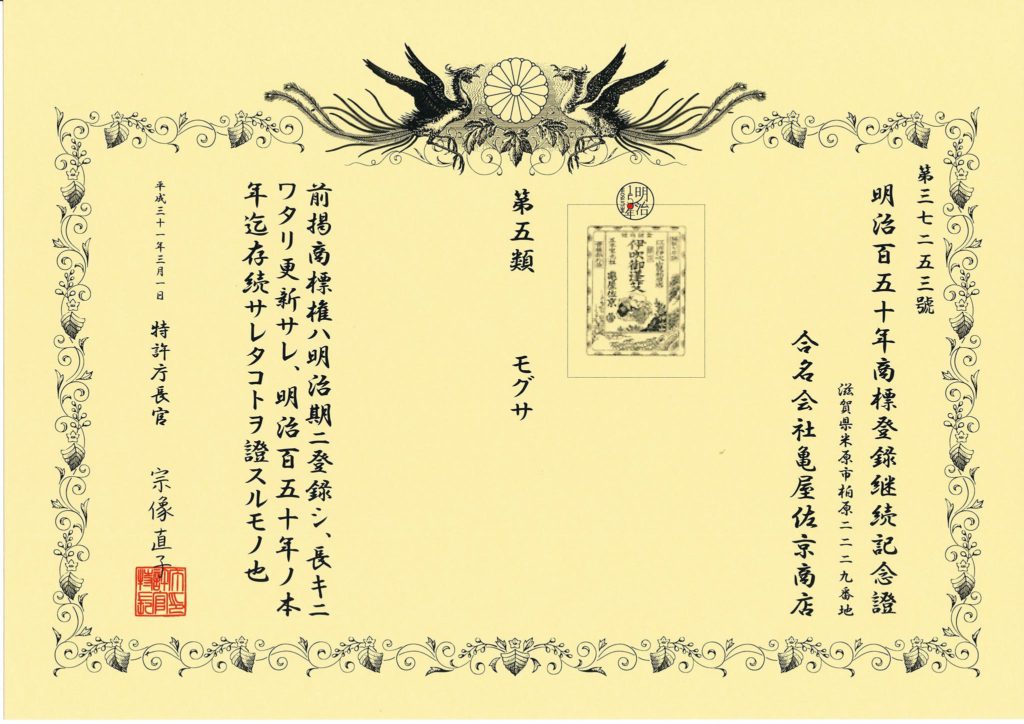 第三七二五三號
明治百五十年商標登錄継続記念證
滋賀県米原市柏原二二二九番地
合名会社亀屋佐京商店
明治
150年
伊吹御蓬艾
亀屋佐京
第五類　モグサ
前掲商標権ハ明治期ニ登錄シ、長キニ
ワタリ更新サレ、明治百五十年ノ本
年迄存続サレタコトヲ證スルモノ也
平成三十一年三月一日　特許庁長官　宗像直子